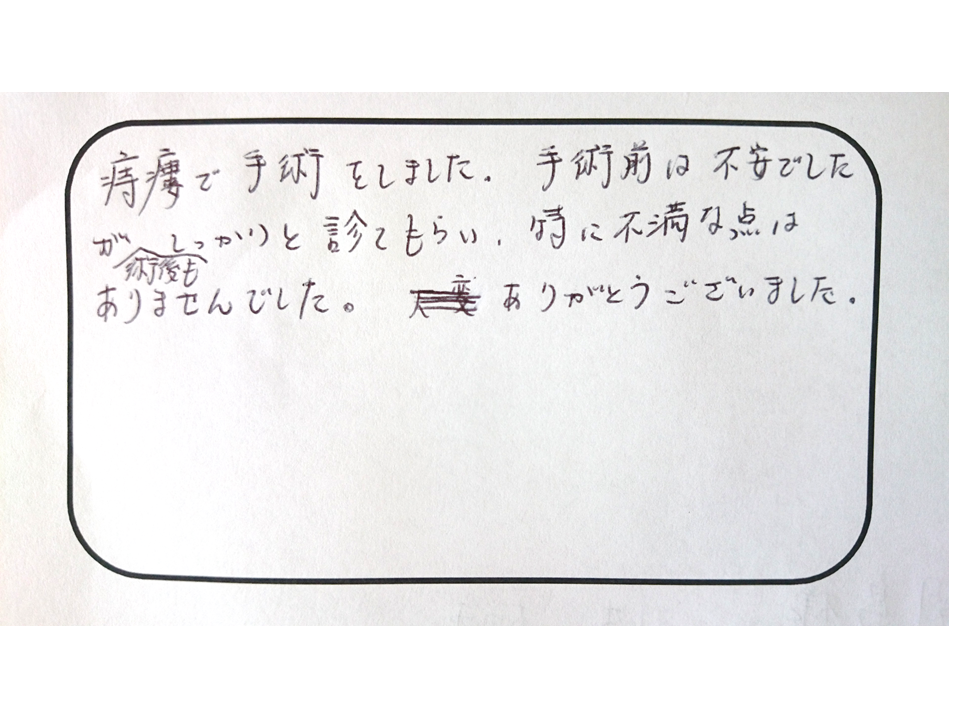 痔瘻で手術をしました。手術前は不安でした
が術後もしっかりと診てもらい、特に不満な点は
ありませんでした。大変ありがとうございました。